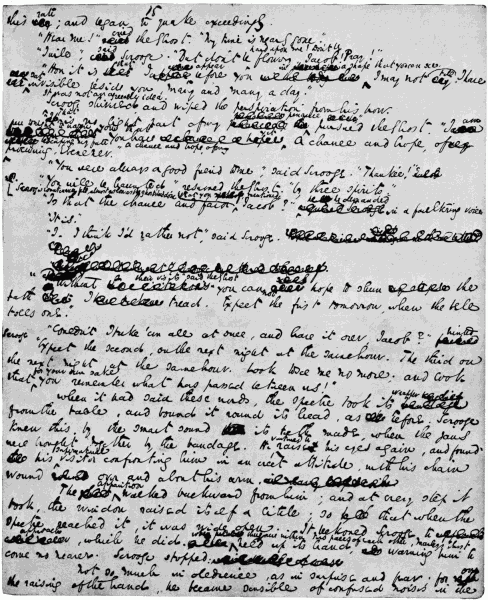 15
this rate; and began to quake exceedingly.
"Hear me!" cried the Ghost. "My time is nearly gone."
"I will," said Scrooge. "But don't be hard upon me! Don't be flowery, Jacob! Pray!"
"How it is that I appear before you in a shape that you can see, I may not tell. I have
sat invisible beside you many and many a day."
It was not an agreeable idea.
Scrooge shivered, and wiped the perspiration from his brow.
"That is no light part of my penance," pursued the Ghost. "I am
here to-night to warn you that you have yet a chance and hope, of
escaping my fate. A chance and hope of my
procuring, Ebenezer."
"You were always a good friend to me," said Scrooge. "Thank'ee!"
"You will be haunted," returned the Ghost, "by Three Spirits."
"Is that the chance and hope, Jacob?" he demanded in a faltering voice
"It is."
"I—I think I'd rather not," said Scrooge.
"Without their visits," said the Ghost, "you cannot hope to shun the
path I tread. Expect the first tomorrow, when the bell
tolls one."
"Couldn't I take 'em all at once, and have it over, Jacob?" hinted
Scrooge
"Expect the second, on the next night at the same hour. The third on
the next night, at the same hour. Look to see me no more; and look
that, for your own sake, you remember what has passed between us!"
When it had said these words, the spectre took its wrapper
from the table, and bound it round its head, as before. Scrooge
knew this, by the smart sound its teeth made, when the jaws
were brought together by the bandage. He ventured to raise his eyes again, and found
his supernatural visitor confronting him in an erect attitude, with his chain
wound over and about his arm.
The apparition walked backward from him; and at every step it
took, the window raised itself a little; so that when the
spectre reached it, it was wide open. It beckoned Scrooge to
approach, which he did. When they were within two paces of each other, Marley's Ghost
held up its hand, warning him to
come no nearer. Scrooge stopped.
Not so much in obedience, as in surprise and fear: for on
the raising of the hand, he became sensible of confused noises in the